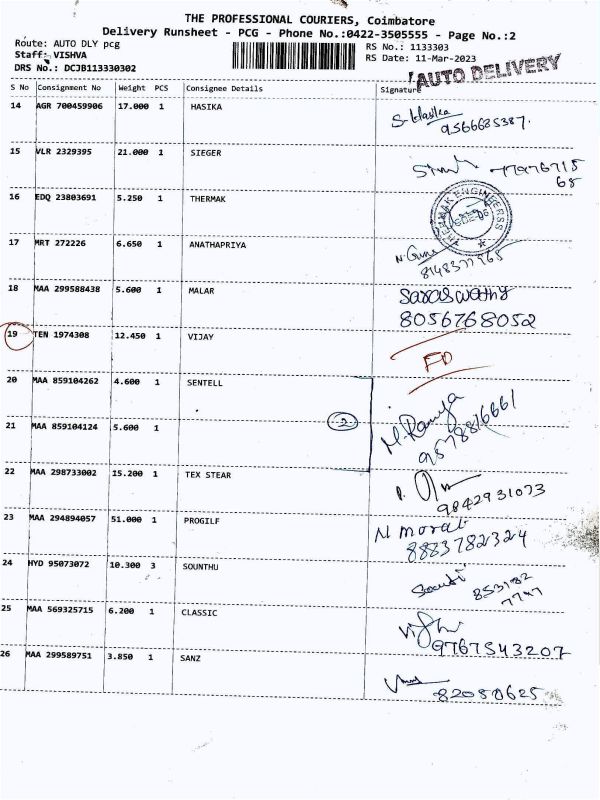 THE PROFESSIONAL COURIERS, Coimbatore
Delivery Runsheet - PCG - Phone No.:0422-3505555 - Page No.:2
Route: AUTO DLY pcg
RS No.: 1133303
Staff: VISHVA
RS Date: 11-Mar-2023
DRS No.: DCJB113330302
AUTO DELIVERY
S No Consignment No Weight PCS Consignee Details Signature
14 AGR 700459906 17.000 1 HASIKA
S. Hasika
9566685387.
15 VLR 2329395 21.000 1 SIEGER
77976715
68
16 EDQ 23803691 5.250 1 THERMAK
THERMAK ENGINEERSS
17 MRT 272226 6.650 1 ANATHAPRIYA
N. Guna
8148377765
18 MAA 299588438 5.600 1 MALAR
Saraswathy
8056768052
19 TEN 1974308 12.450 1 VIJAY
FD
20 MAA 859104262 4.600 1 SENTELL
2
M. Ramya
9578816661
21 MAA 859104124 5.600 1
22 MAA 298733002 15.200 1 TEX STEAR
9842931073
23 MAA 294894057 51.000 1 PROGILF
N moral
8883782324
24 HYD 95073072 10.300 3 SOUNTHU
853182
7747
25 MAA 569325715 6.200 1 CLASSIC
9767543207
26 MAA 299589751 3.850 1 SANZ
82050625